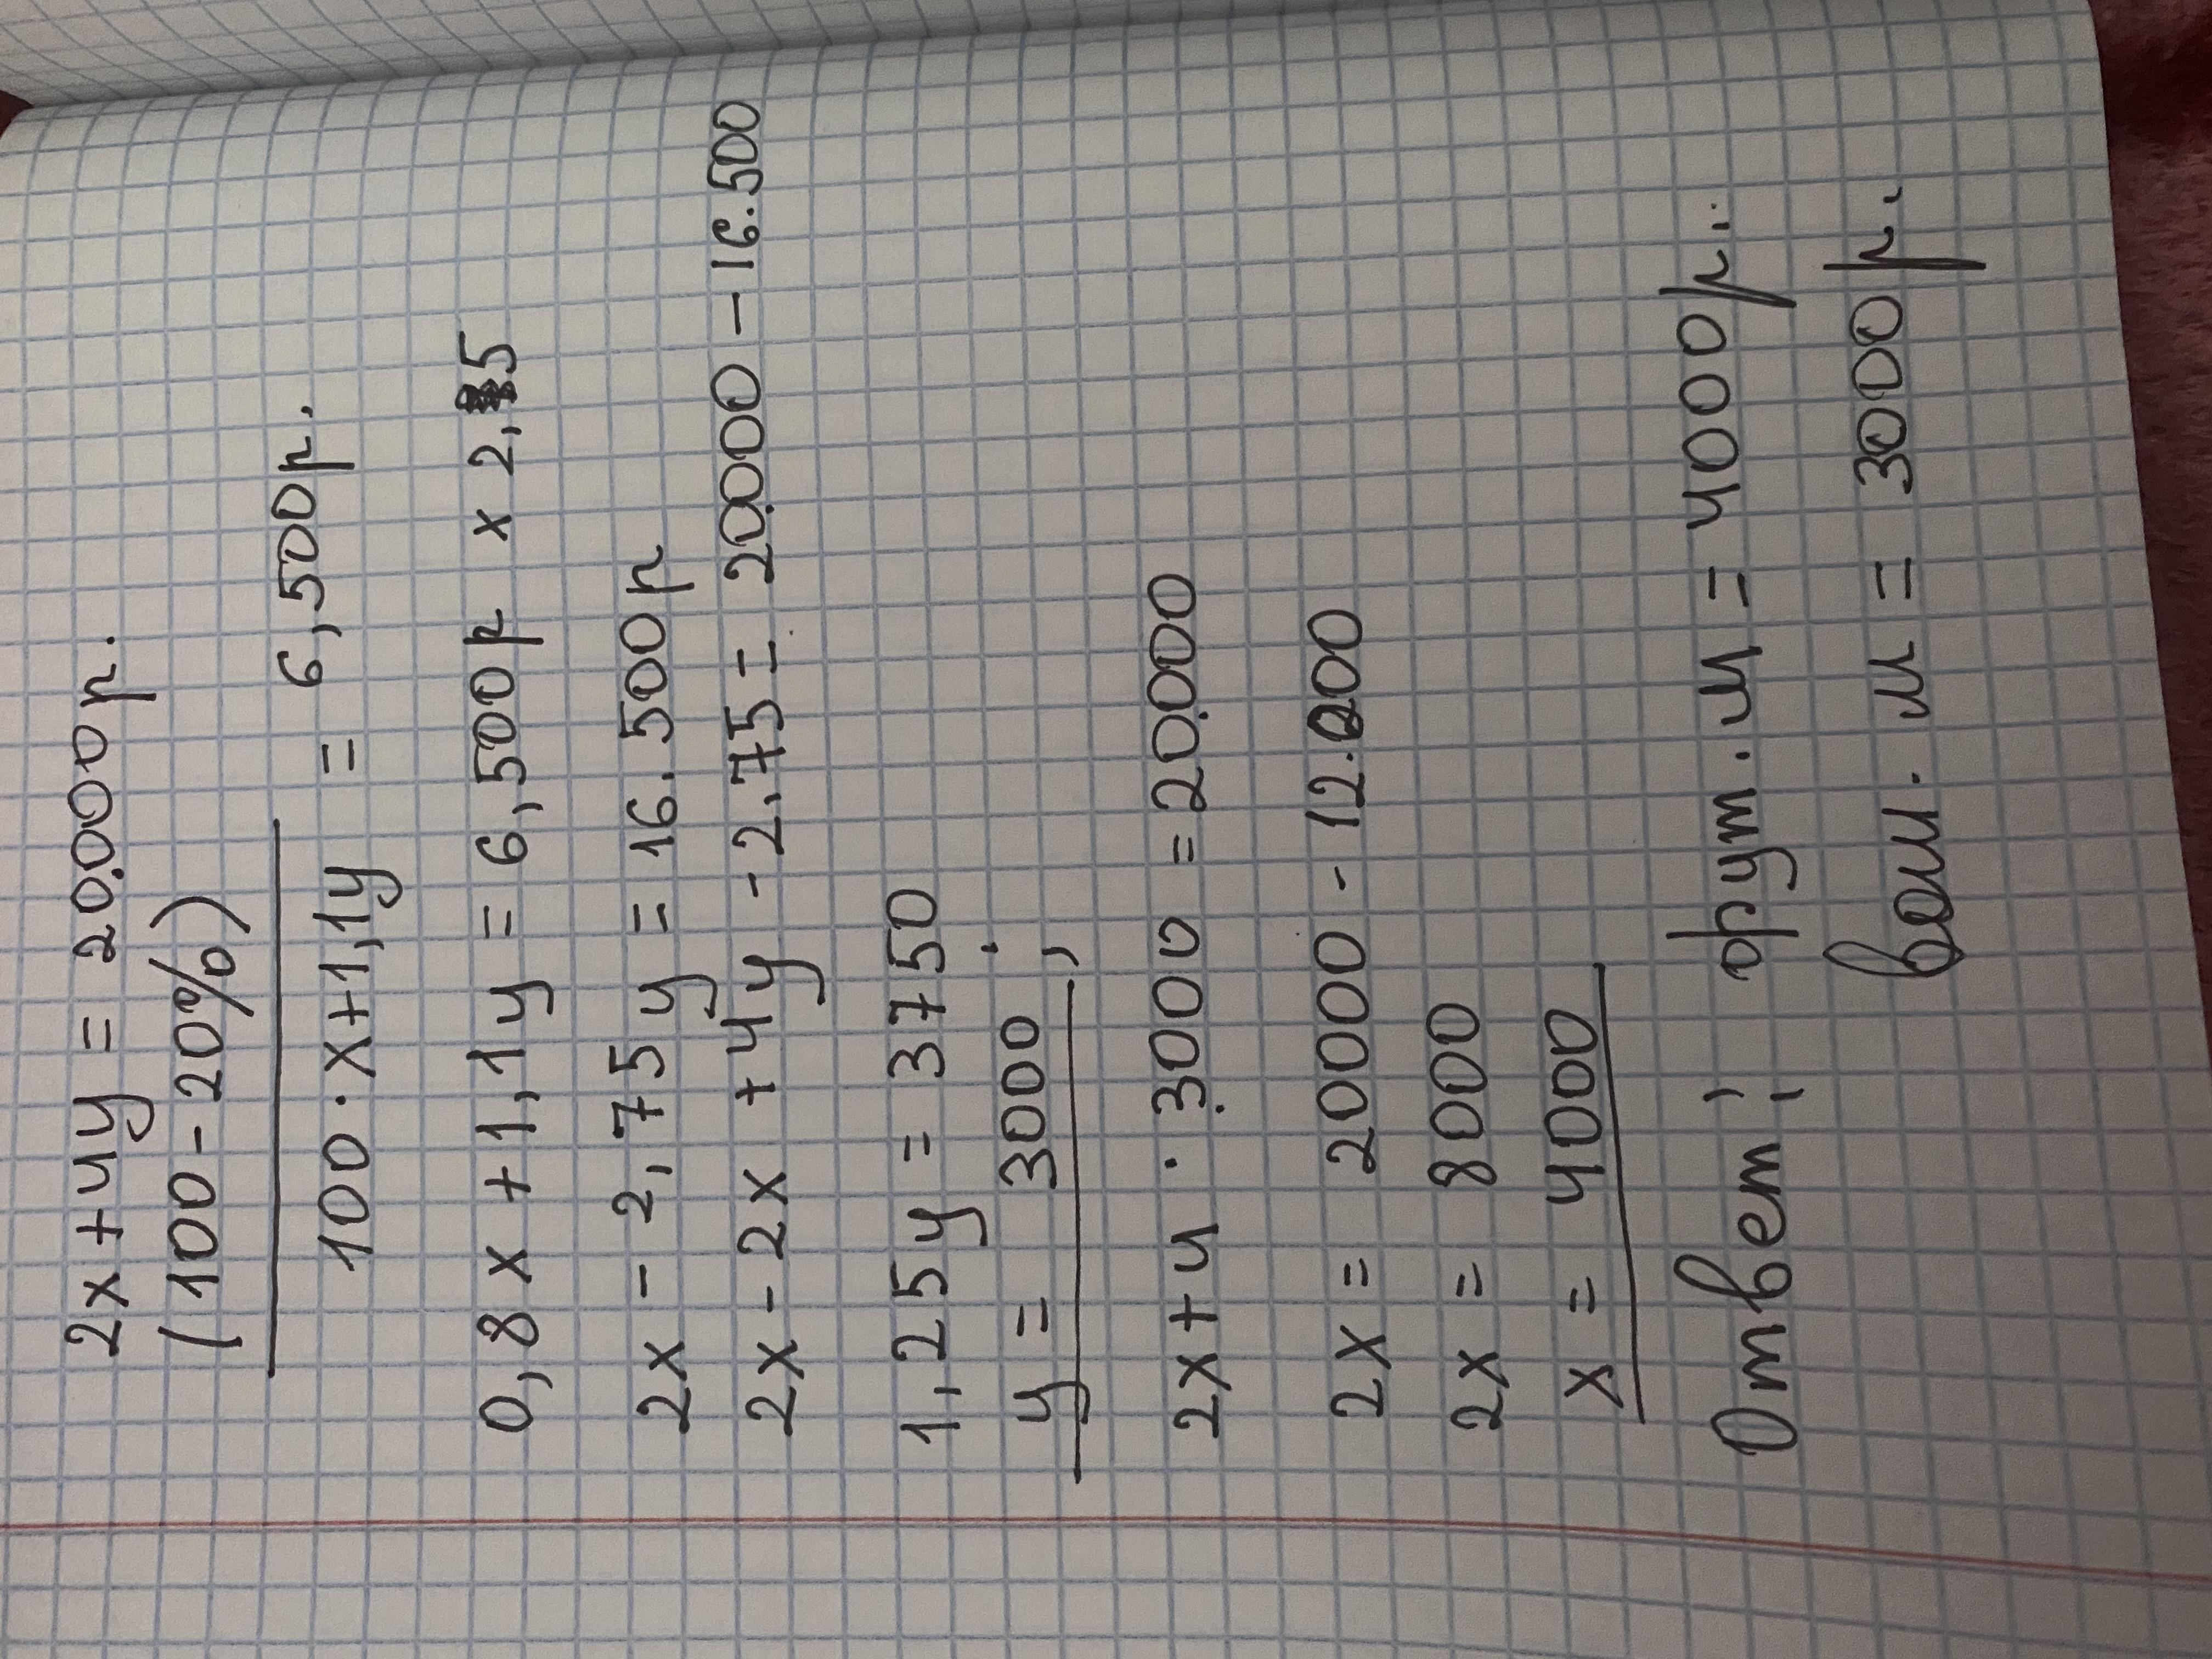 2x + 4y = 20.000 р.
(100 - 20%)
100 · x + 1,1y = 6,500 р.
0,8 x + 1,1y = 6,500 р x 2,5
2x - 2,75 y = 16.500 р
2x - 2x + 4y - 2,75 = 20.000 - 16.500
1,25y = 3750
y = 3000 ;
2x + 4 · 3000 = 20.000
2x = 20000 - 12.000
2x = 8000
x = 4000
Ответ; фут. м = 4000 р.
вол. м = 3000 р.